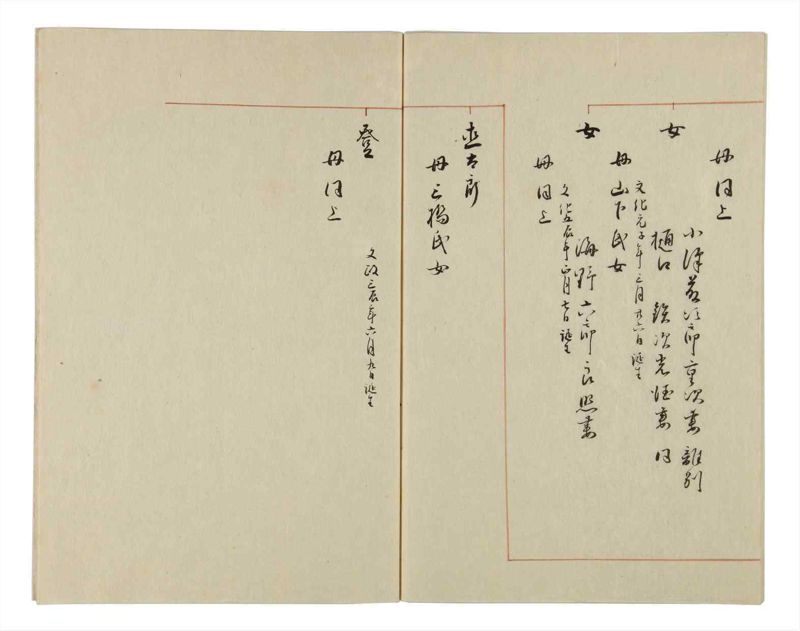 母同上
小澤善次郎重次妻 離別
女
樋口鉄次光恒妻 同
文化元子年三月廿六日誕生
母山下氏女
女
海野六郎良照妻
文化五辰年正月七日誕生
母同上
直太郎
母三橋氏女
登
文政三辰年六月九日誕生
母同上